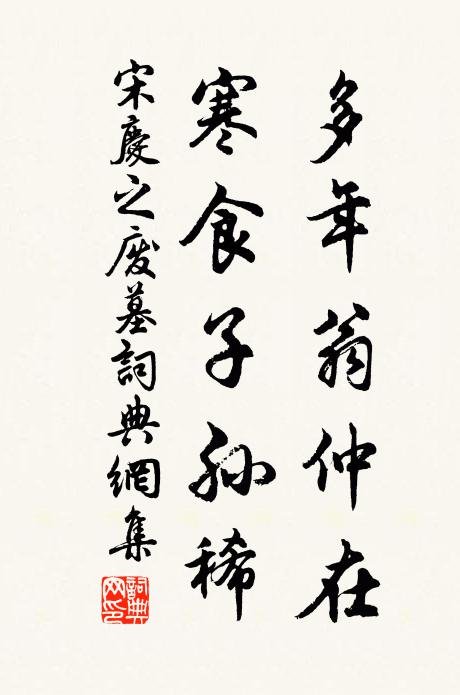 多年翁仲在
寒食子孫稀
宋慶之廢墓詞典網集
詞典網印